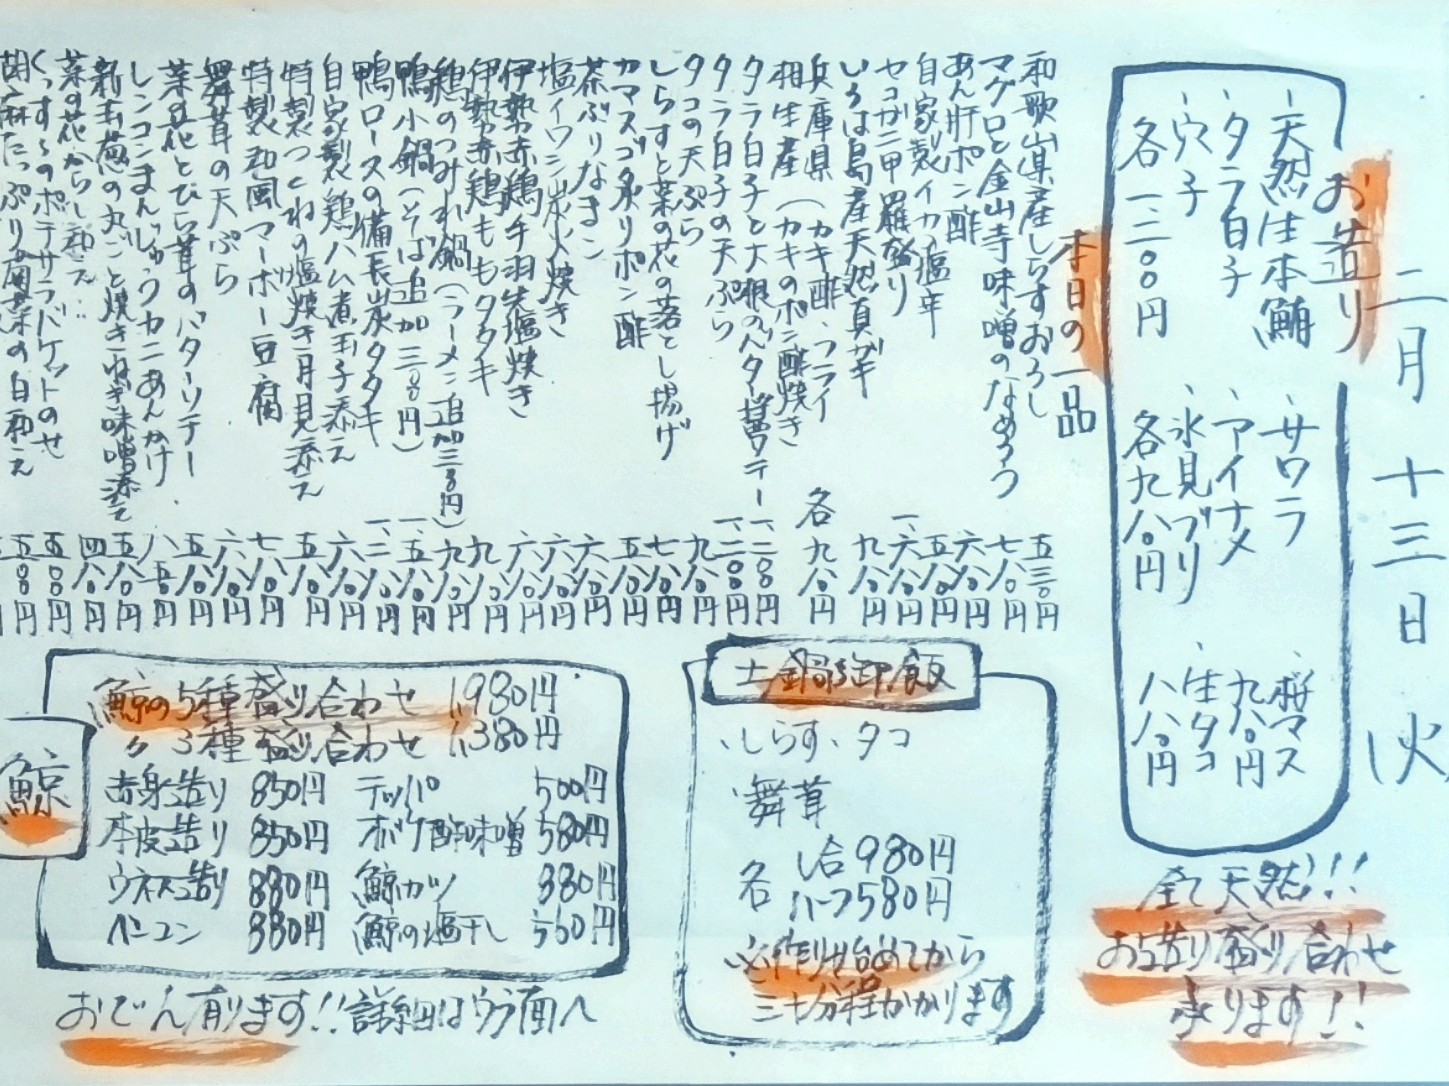 二月十三日(火)
お造り
・天然生本鮪
・タラ白子
・穴子
各一二〇〇円
・サワラ
・アイナメ
・氷見ブリ
各九八〇円
・桜マス
九八〇円
・生タコ
八八〇円
全て天然!!
お造り盛り合わせ
承ります!!
本日の一品
和歌山県産しらすおろし 五三〇円
マグロと金山寺味噌のなめろう 七八〇円
あん肝ポン酢 六八〇円
自家製イカの塩辛 五八〇円
セコガニ甲羅盛り 一、六八〇円
いろは島産天然真ガキ 九八〇円
兵庫県(カキ酢・フライ
相生産(カキのポン酢焼き 各九八〇円
タラ白子と大根のバター醤油ソテー 一、二〇〇円
タラ白子の天ぷら 一、二〇〇円
タコの天ぷら 九八〇円
しらすと菜の花の落とし揚げ 七八〇円
カマスゴ炙りポン酢 五八〇円
茶ぶりなまこ 六八〇円
塩イワシ炭火焼き 六八〇円
伊勢赤鶏手羽先塩焼き 六八〇円
伊勢赤鶏ももタタキ 九八〇円
鶏のつみれ鍋(ラーメン追加三〇〇円) 九八〇円
鴨小鍋(そば追加三〇〇円) 一、五八〇円
鴨ロースの備長炭タタキ 一、二八〇円
自家製鶏ハム煮玉子添え 六八〇円
特製つくねの塩焼き月見添え 五八〇円
特製和風マーボー豆腐 七八〇円
舞茸の天ぷら 六八〇円
菜の花とひら茸のバターソテー 五八〇円
レンコンまんじゅうカニあんかけ 八五〇円
新玉葱の丸ごと焼きねぎ味噌添え 五八〇円
菜の花からし和え 四八〇円
くっすんのポテサラバケットのせ 五〇〇円
胡麻たっぷり菊菜の白和え 五〇〇円
土鍋御飯
・しらす・タコ
・舞茸
各 一合980円
ハーフ580円
※作り始めてから
三十分程かかります
鯨
鯨の5種盛り合わせ 1,980円
〃 3種盛り合わせ 1,380円
赤身造り 850円 テッパ 500円
本皮造り 850円 オバケ酢味噌 580円
ウネス造り 880円 鯨カツ 880円
ベーコン 880円 鯨の塩干し 560円
おでん有ります!!詳細はウラ面へ